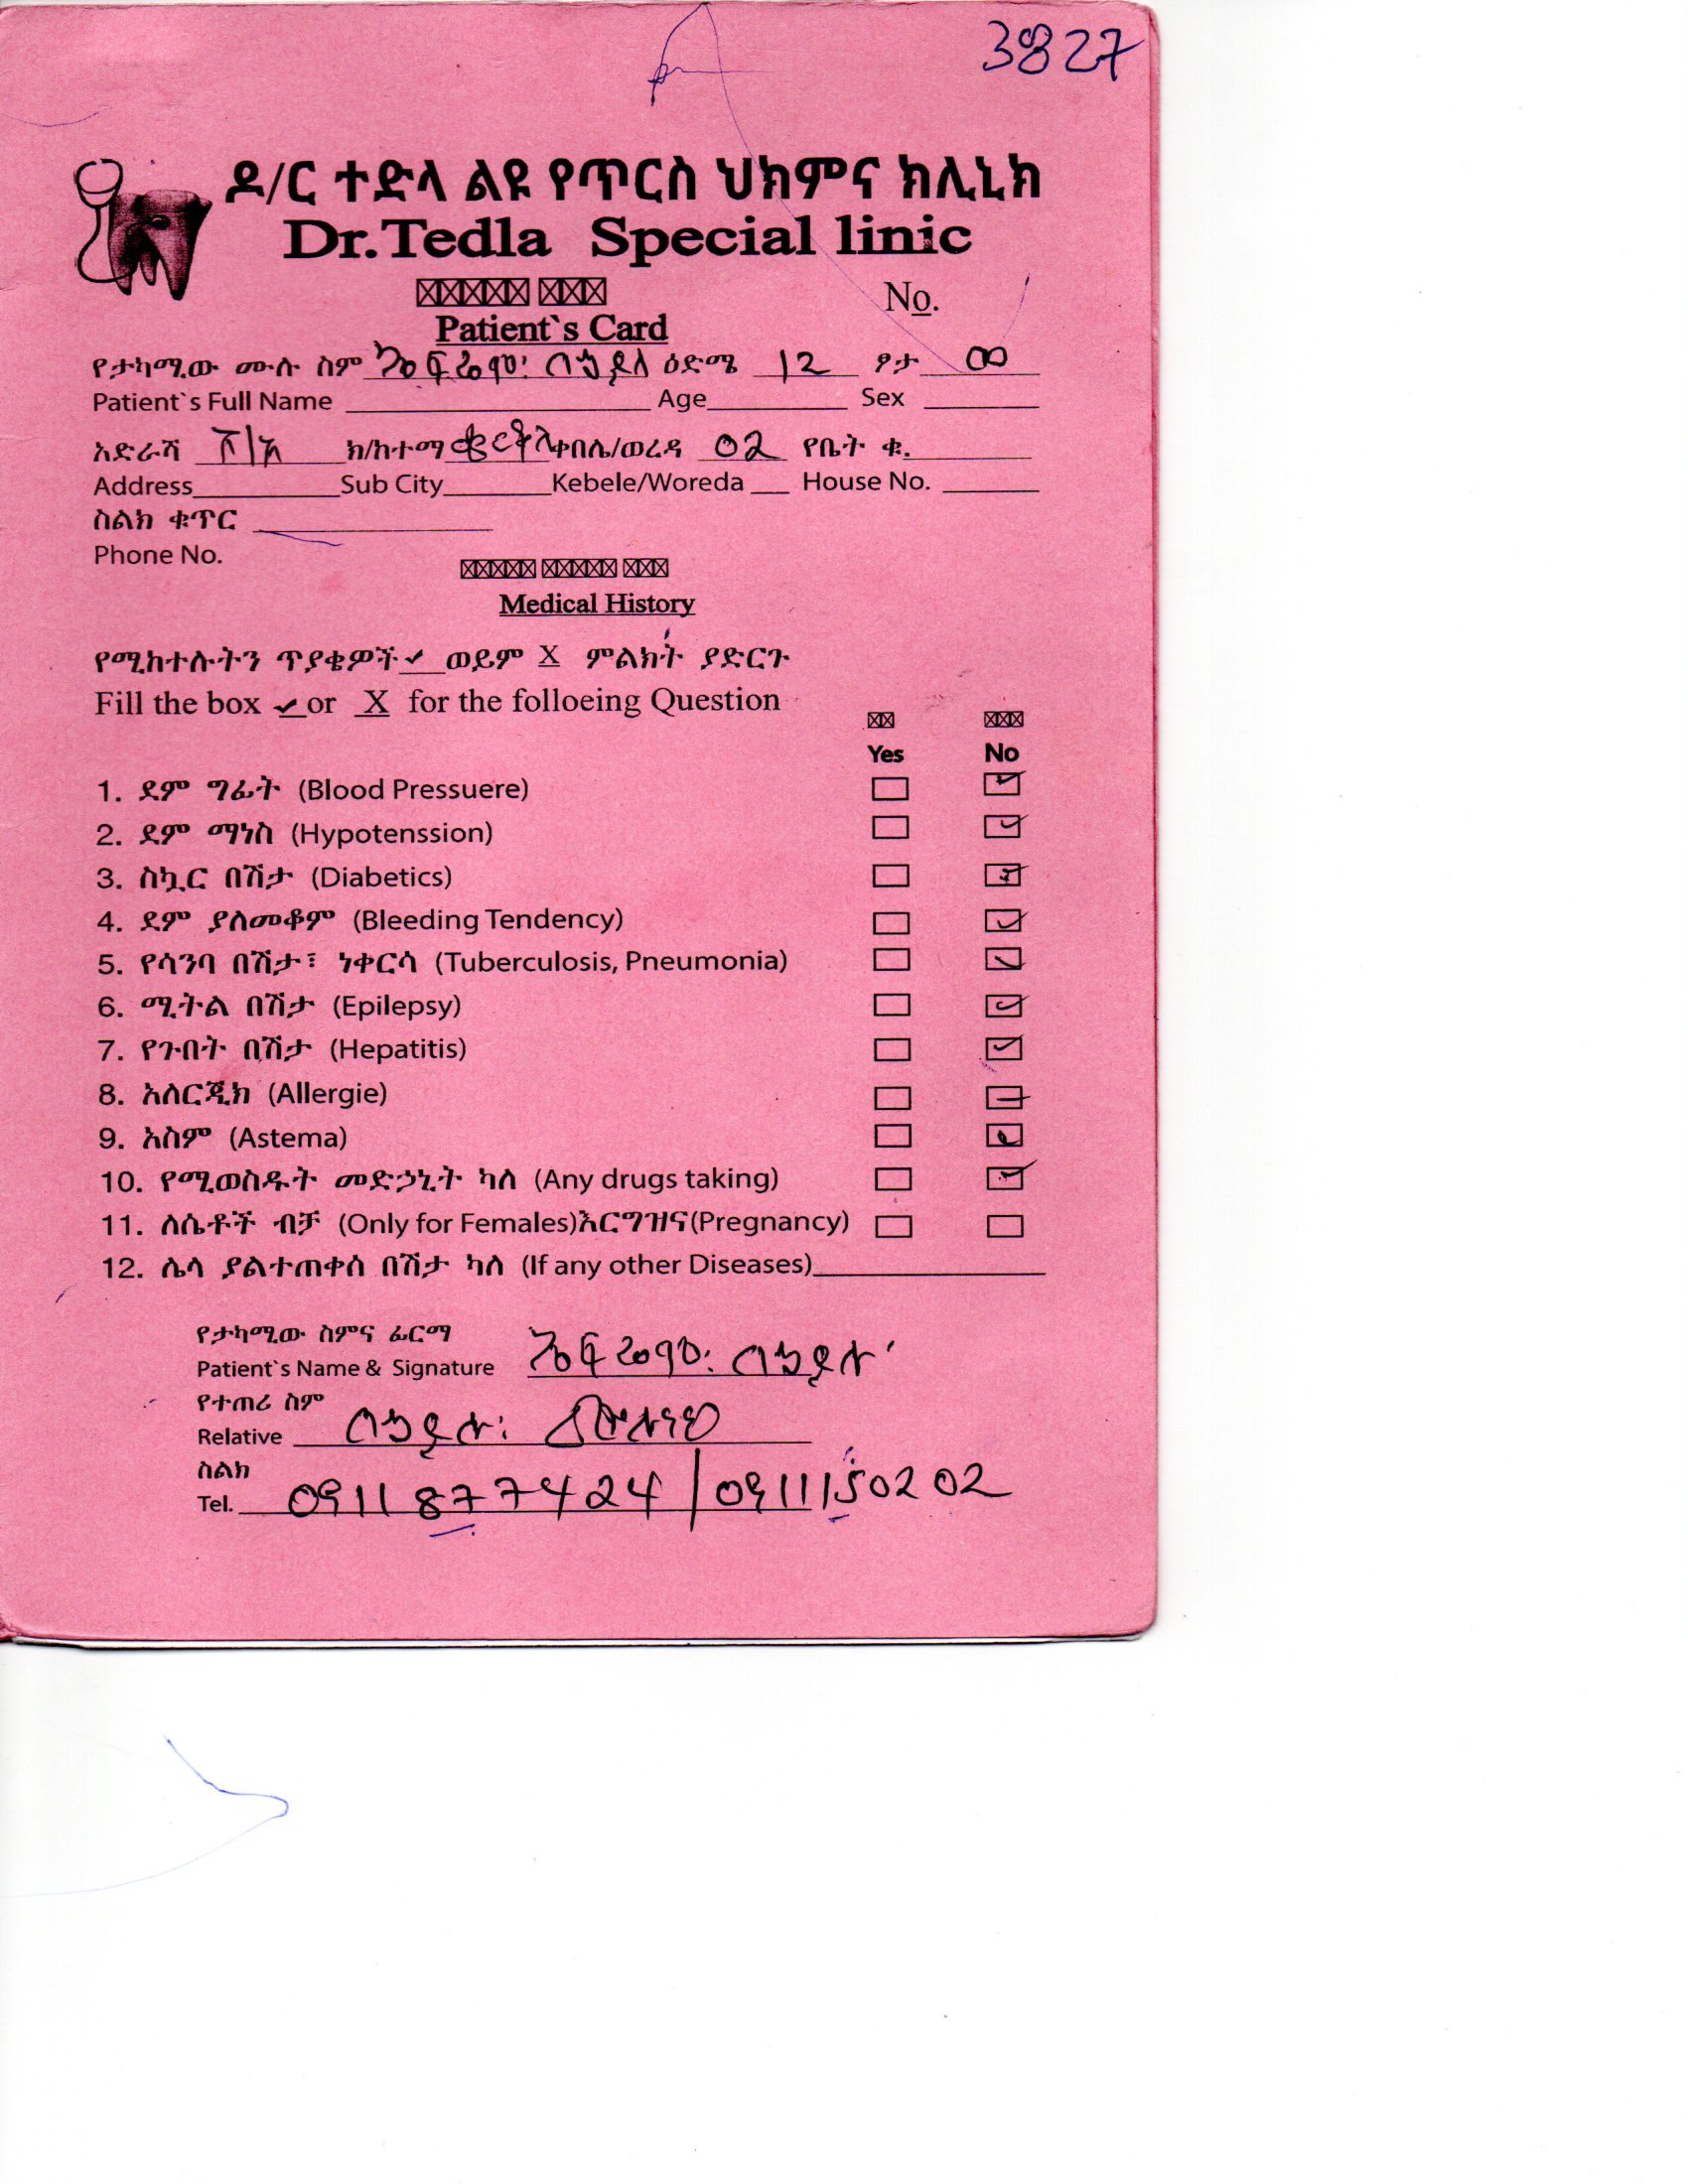 3827
ዶ/ር ተድላ ልዩ የጥርስ ህክምና ክሊኒክ
Dr.Tedla Special linic
No.
Patient`s Card
የታካሚው ሙሉ ስም ኤፍሬም: ዕድሜ 12 ፆታ ወ
Patient`s Full Name Age Sex
አድራሻ አ/አ ክ/ከተማ ቀበሌ/ወረዳ 02 የቤት ቁ.
Address Sub City Kebele/Woreda House No.
ስልክ ቁጥር
Phone No.
Medical History
የሚከተሉትን ጥያቄዎች ✓ ወይም X ምልክት ያድርጉ
Fill the box ✓ or X for the folloeing Question
Yes No
1. ደም ግፊት (Blood Pressuere)
2. ደም ማነስ (Hypotenssion)
3. ስኳር በሽታ (Diabetics)
4. ደም ያለመቆም (Bleeding Tendency)
5. የሳንባ በሽታ፣ ነቀርሳ (Tuberculosis, Pneumonia)
6. ሚትል በሽታ (Epilepsy)
7. የጉበት በሽታ (Hepatitis)
8. አለርጂክ (Allergie)
9. አስም (Astema)
10. የሚወስዱት መድኃኒት ካለ (Any drugs taking)
11. ለሴቶች ብቻ (Only for Females)እርግዝና(Pregnancy)
12. ሌላ ያልተጠቀሰ በሽታ ካለ (If any other Diseases)
የታካሚው ስምና ፊርማ
Patient`s Name & Signature ኤፍሬም:
የተጠሪ ስም
Relative
ስልክ
Tel. 0911877424 / 0911150202